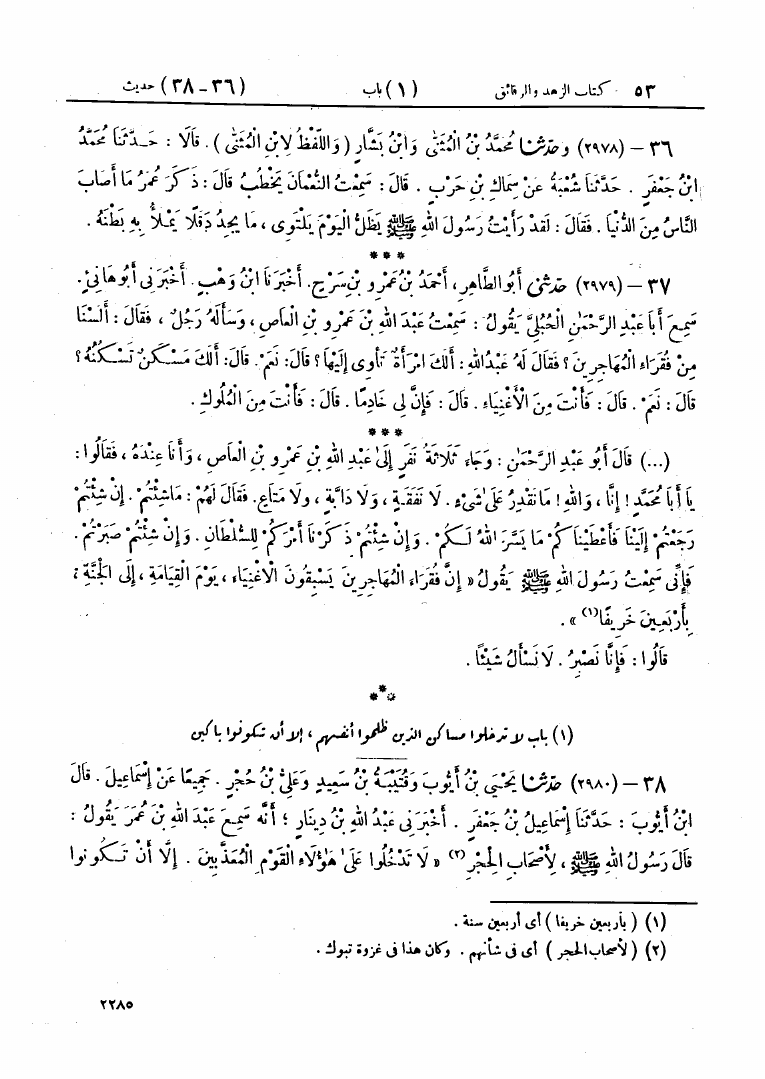 ٥٣ كتاب الزهد والرقائق (١) باب (٣٦-٣٨) حديث
٣٦ - (٢٩٧٨) وحدثنا مُحَمَّدُ بْنُ الْمُثَنَّى وَابْنُ بَشَّارٍ (وَاللَّفْظُ لِابْنِ الْمُثَنَّى). قَالَا: حَدَّثَنَا مُحَمَّدُ
ابْنُ جَعْفَرٍ. حَدَّثَنَا شُعْبَةُ عَنْ سِمَاكِ بْنِ حَرْبٍ. قَالَ: سَمِعْتُ النُّعْمَانَ يَخْطُبُ قَالَ: ذَكَرَ عُمَرُ مَا أَصَابَ
النَّاسُ مِنَ الدُّنْيَا. فَقَالَ: لَقَدْ رَأَيْتُ رَسُولَ اللهِ ﷺ يَظَلُّ الْيَوْمَ يَلْتَوِي، مَا يَجِدُ دَقَلًا يَمْلَأُ بِهِ بَطْنَهُ.
***
٣٧ - (٢٩٧٩) حدثني أَبُو الطَّاهِرِ، أَحْمَدُ بْنُ عَمْرِو بْنِ سَرْحٍ. أَخْبَرَنَا ابْنُ وَهْبٍ. أَخْبَرَنِي أَبُو هَانِئٍ.
سَمِعَ أَبَا عَبْدِ الرَّحْمَنِ الْحُبُلِيَّ يَقُولُ: سَمِعْتُ عَبْدَ اللهِ بْنَ عَمْرِو بْنِ الْعَاصِ، وَسَأَلَهُ رَجُلٌ، فَقَالَ: أَلَسْنَا
مِنْ فُقَرَاءِ الْمُهَاجِرِينَ؟ فَقَالَ لَهُ عَبْدُ اللهِ: أَلَكَ امْرَأَةٌ تَأْوِي إِلَيْهَا؟ قَالَ: نَعَمْ. قَالَ: أَلَكَ مَسْكَنٌ تَسْكُنُهُ؟
قَالَ: نَعَمْ. قَالَ: فَأَنْتَ مِنَ الْأَغْنِيَاءِ. قَالَ: فَإِنَّ لِي خَادِمًا. قَالَ: فَأَنْتَ مِنَ الْمُلُوكِ.
***
(...) قَالَ أَبُو عَبْدِ الرَّحْمَنِ: وَجَاءَ ثَلَاثَةُ نَفَرٍ إِلَى عَبْدِ اللهِ بْنِ عَمْرِو بْنِ الْعَاصِ، وَأَنَا عِنْدَهُ، فَقَالُوا:
يَا أَبَا مُحَمَّدٍ! إِنَّا، وَاللهِ! مَا نَقْدِرُ عَلَى شَيْءٍ. لَا نَفَقَةٍ، وَلَا دَابَّةٍ، وَلَا مَتَاعٍ. فَقَالَ لَهُمْ: مَا شِئْتُمْ. إِنْ شِئْتُمْ
رَجَعْتُمْ إِلَيْنَا فَأَعْطَيْنَاكُمْ مَا يَسَّرَ اللهُ لَكُمْ. وَإِنْ شِئْتُمْ ذَكَرْنَا أَمْرَكُمْ لِلسُّلْطَانِ. وَإِنْ شِئْتُمْ صَبَرْتُمْ.
فَإِنِّي سَمِعْتُ رَسُولَ اللهِ ﷺ يَقُولُ «إِنَّ فُقَرَاءَ الْمُهَاجِرِينَ يَسْبِقُونَ الْأَغْنِيَاءَ، يَوْمَ الْقِيَامَةِ، إِلَى الْجَنَّةِ،
بِأَرْبَعِينَ خَرِيفًا (١)».
قَالُوا: فَإِنَّا نَصْبِرُ. لَا نَسْأَلُ شَيْئًا.
***
(١) باب لا تدخلوا مساكن الذين ظلموا أنفسهم، إلا أن تكونوا باكين
٣٨ - (٢٩٨٠) حدثنا يَحْيَى بْنُ أَيُّوبَ وَقُتَيْبَةُ بْنُ سَعِيدٍ وَعَلِيُّ بْنُ حُجْرٍ. جَمِيعًا عَنْ إِسْمَاعِيلَ. قَالَ
ابْنُ أَيُّوبَ: حَدَّثَنَا إِسْمَاعِيلُ بْنُ جَعْفَرٍ. أَخْبَرَنِي عَبْدُ اللهِ بْنُ دِينَارٍ؛ أَنَّهُ سَمِعَ عَبْدَ اللهِ بْنَ عُمَرَ يَقُولُ:
قَالَ رَسُولُ اللهِ ﷺ، لِأَصْحَابِ الْحِجْرِ (٢) «لَا تَدْخُلُوا عَلَى هَؤُلَاءِ الْقَوْمِ الْمُعَذَّبِينَ. إِلَّا أَنْ تَكُونُوا
(١) (بأربعين خريفا) أى أربعين سنة.
(٢) (لأصحاب الحجر) أى فى شأنهم. وكان هذا فى غزوة تبوك.
٢٢٨٥